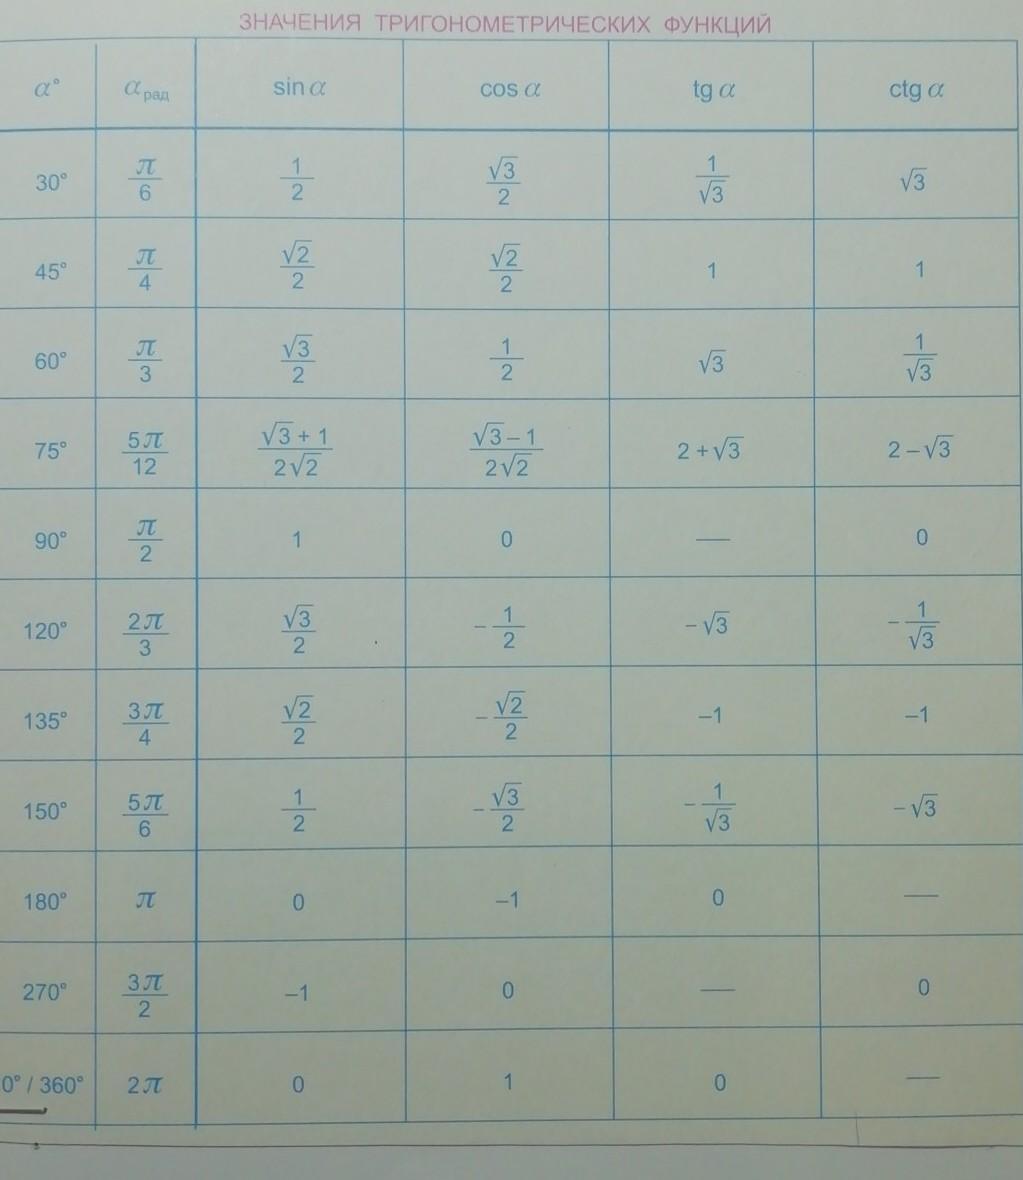 ЗНАЧЕНИЯ ТРИГОНОМЕТРИЧЕСКИХ ФУНКЦИЙ
α° α рад sin α cos α tg α ctg α
30° π/6 1/2 √3/2 1/√3 √3
45° π/4 √2/2 √2/2 1 1
60° π/3 √3/2 1/2 √3 1/√3
75° 5π/12 (√3 + 1)/(2√2) (√3 – 1)/(2√2) 2 + √3 2 – √3
90° π/2 1 0 — 0
120° 2π/3 √3/2 –1/2 –√3 –1/√3
135° 3π/4 √2/2 –√2/2 –1 –1
150° 5π/6 1/2 –√3/2 –1/√3 –√3
180° π 0 –1 0 —
270° 3π/2 –1 0 — 0
0° / 360° 2π 0 1 0 —